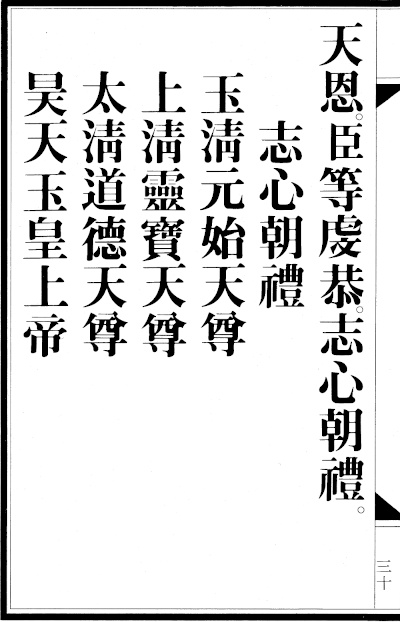 天恩。臣等虔恭。志心朝禮。
志心朝禮
玉淸元始天尊
上淸靈寶天尊
太淸道德天尊
昊天玉皇上帝
三十